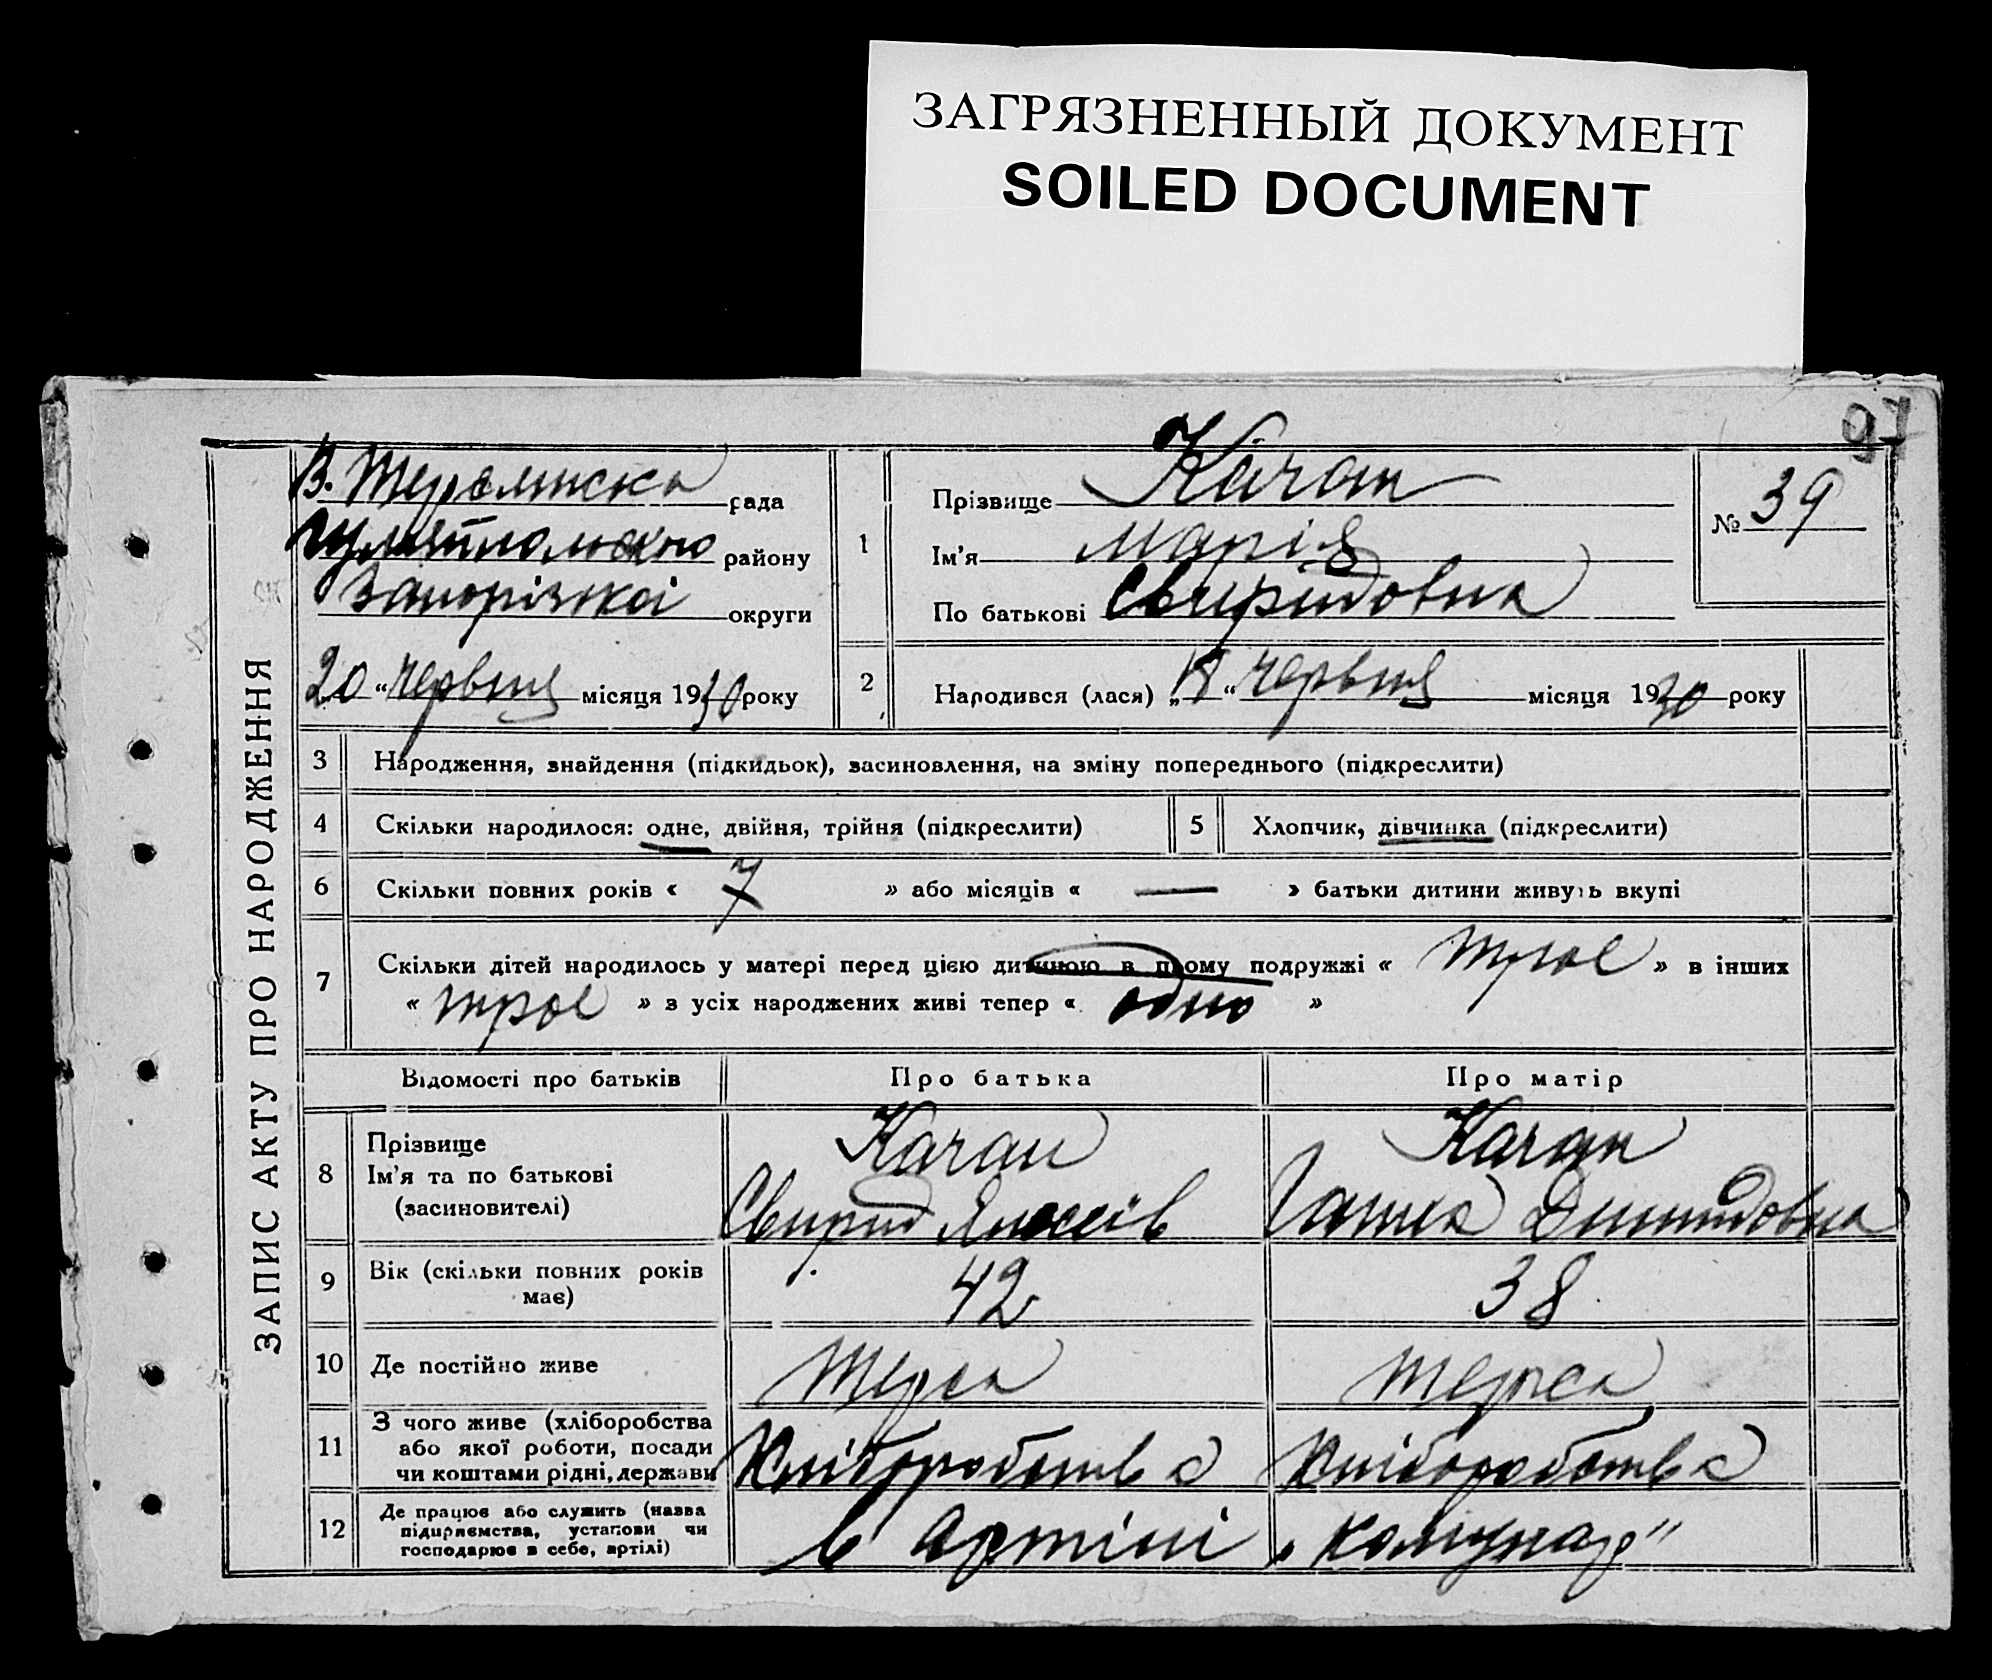 ЗАГРЯЗНЕННЫЙ ДОКУМЕНТ
SOILED DOCUMENT
97
ЗАПИС АКТУ ПРО НАРОДЖЕННЯ
рада
району
Запорізкої округи
20 "червня місяця 1930 року
1 Прізвище Качан
Ім'я Марія
По батькові Свиридовна
№ 39
2 Народився (лася) „18" червня місяця 1930 року
3 Народження, знайдення (підкидьок), засиновлення, на зміну попереднього (підкреслити)
4 Скільки народилося: одне, двійня, трійня (підкреслити)
5 Хлопчик, дівчинка (підкреслити)
6 Скільки повних років « 7 » або місяців « — » батьки дитини живуть вкупі
7 Скільки дітей народилось у матері перед цією дитиною в цьому подружжі « троє » в інших
« троє » з усіх народжених живі тепер « одно »
Відомості про батьків Про батька Про матір
8 Прізвище Качан Качан
Ім'я та по батькові
(засиновителі) Свирид Ганна
9 Вік (скільки повних років
має) 42 38
10 Де постійно живе Терса Терса
11 З чого живе (хліборобства
або якої роботи, посади
чи коштами рідні, держави Хліборобства Хліборобства
12 Де працює або служить (назва
підприємства, установи чи
господарює в себе, артілі) в артілі „комунар"